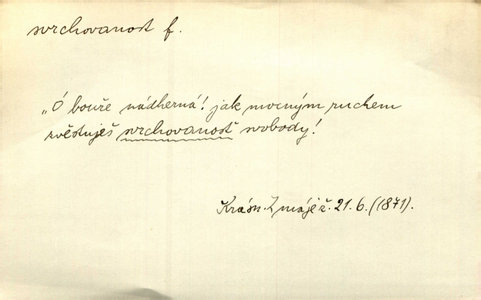 svrchovanost f.
„Ó bouře nádherná! jak mocným ruchem
zvěstuješ svrchovanost svobody!
Krásn. Z máje č. 21.6. (1871).